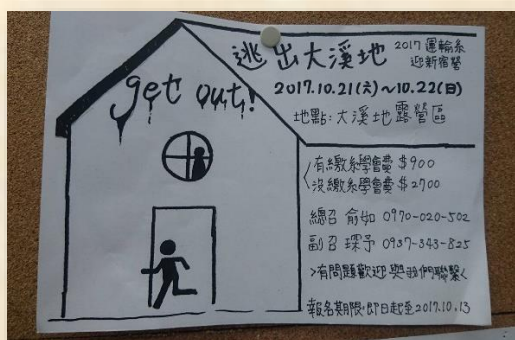 逃出大溪地
2017 運輸系
迎新宿營
get out!
2017.10.21(六)~10.22(日)
地點:大溪地露營區
有繳系學會費 $900
沒繳系學會費 $2700
總召 俞如 0970-020-502
副召 琛予 0937-343-825
>有問題歡迎與我們聯繫<
報名期限:即日起至2017.10.13